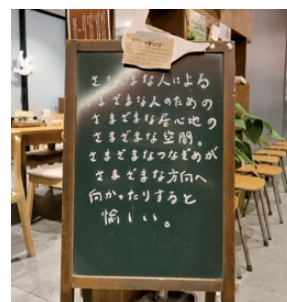 さまざまな人による
さまざまな人のための
さまざまな居心地の
さまざまな空間。
さまざまなつなぎめが
さまざまな方向へ
向かったりすると
愉しい。